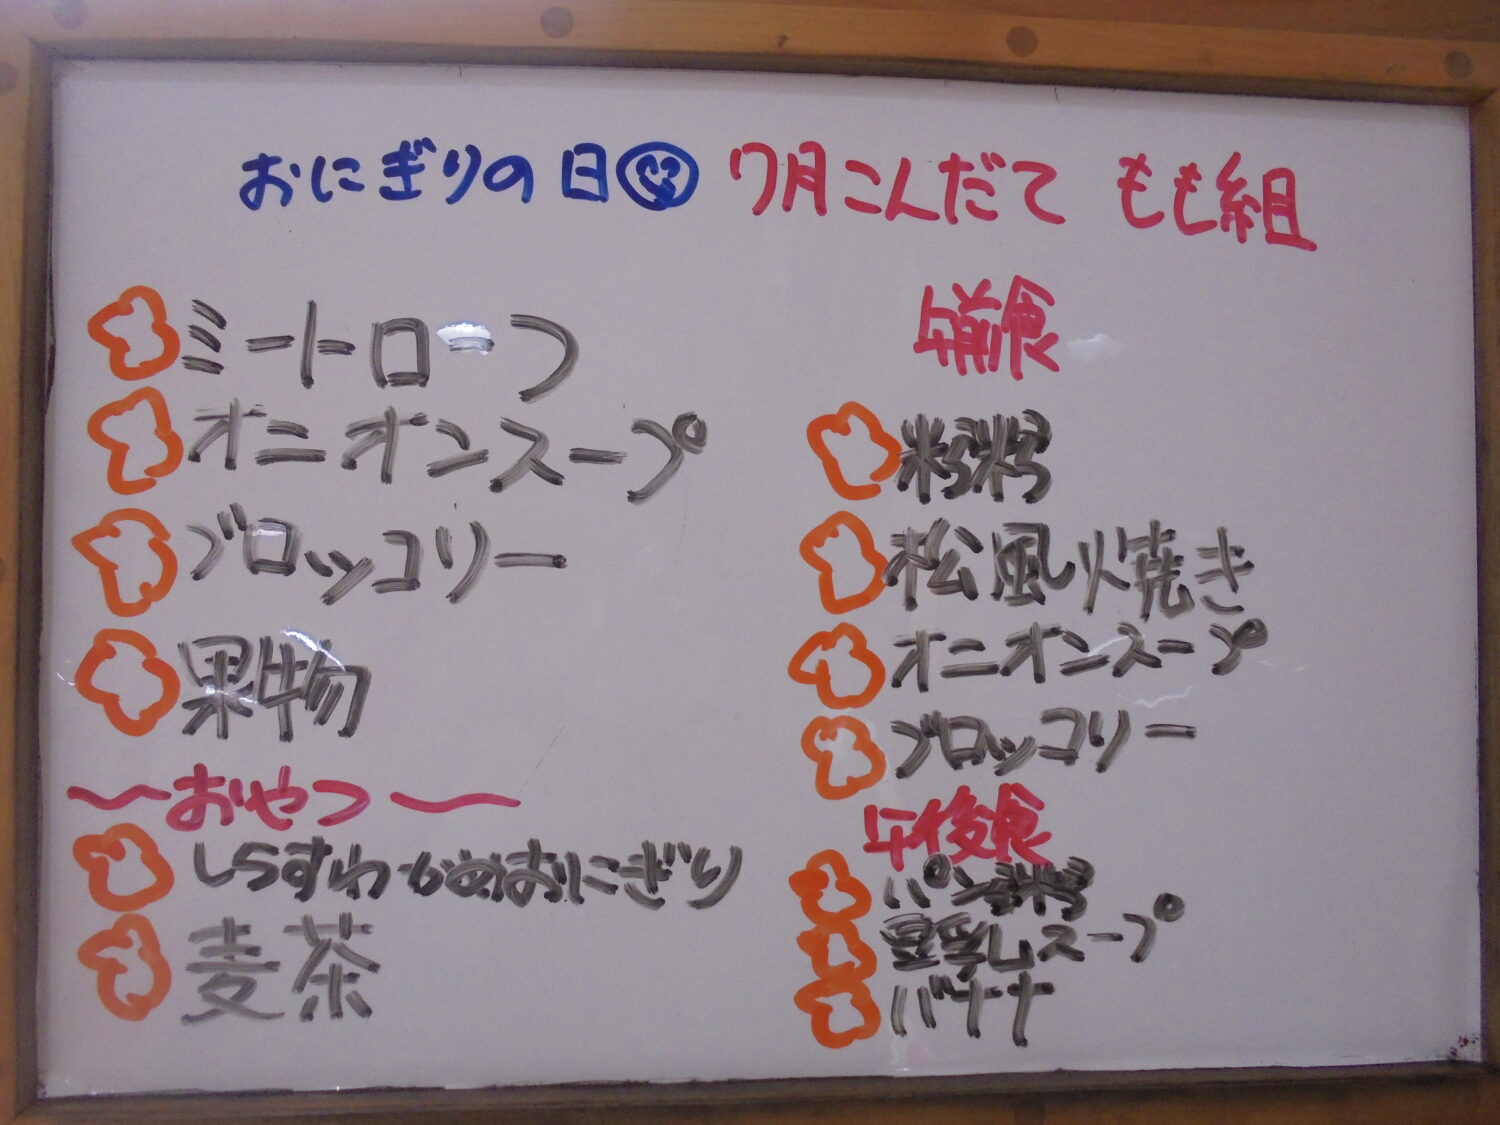 おにぎりの日 7月こんだて もも組
ミートローフ
オニオンスープ
ブロッコリー
果物
〜おやつ〜
しらすわかめおにぎり
麦茶
午前食
松風焼き
オニオンスープ
ブロッコリー
午後食
豆乳スープ
バナナ